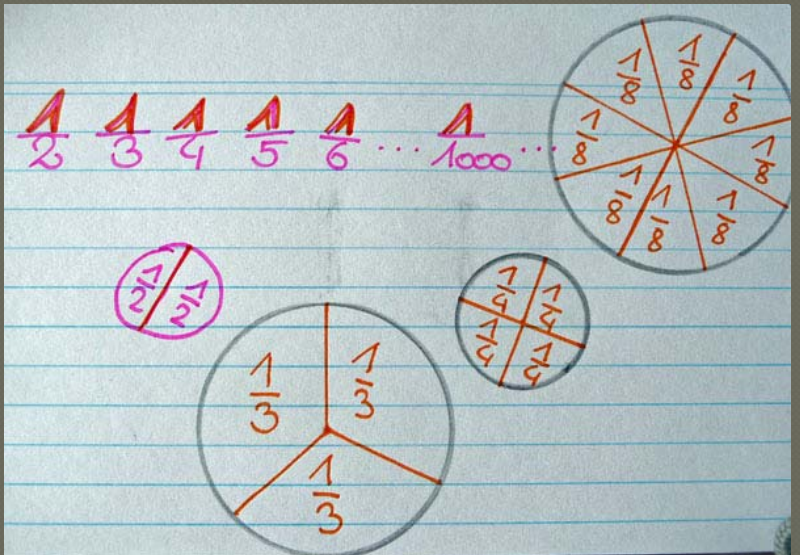 1/2 1/3 1/4 1/5 1/6 ... 1/1000 ...
1/8 1/8 1/8 1/8 1/8 1/8 1/8 1/8
1/2 1/2
1/3 1/3 1/3
1/4 1/4 1/4 1/4